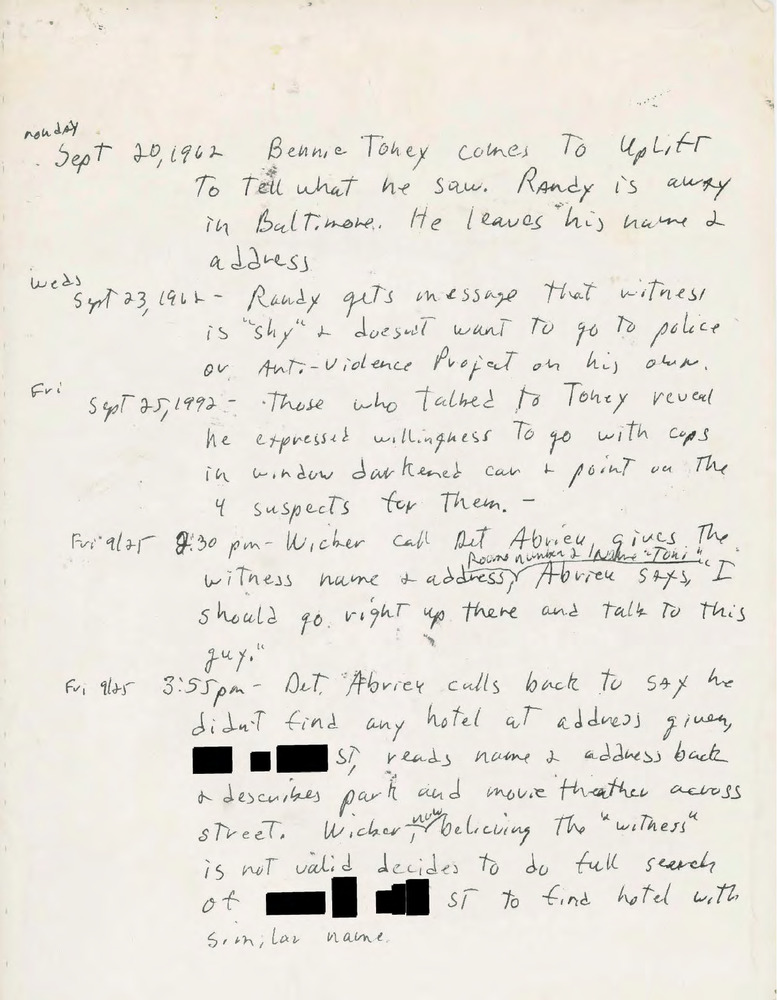 monday
Sept 20, 1962 Bennie Toney comes To UpLift
To tell what he saw. Randy is away
in Baltimore. He leaves his name &
address
Weds
Sept 23, 1962 - Randy gets message that witness
is "shy" & doesn't want to go to police
or Anti-Violence Project on his own.
Fri
Sept 25, 1992 - Those who talked to Toney reveal
he expressed willingness To go with cops
in window darkened car & point out the
4 suspects for them. -
Fri 9/25 2:30 pm - Wicker call Det Abrieu, gives the
Room number & Name "Toni"
witness name & address, Abrieu says, "I
should go right up there and talk to this
guy."
Fri 9/25 3:55 pm - Det. Abrieu calls back to say he
didn't find any hotel at address given,
ST, reads name & address back
& describes park and movie theather across
street. Wicker, now believing the "witness"
is not valid decides to do full search
of ST to find hotel with
similar name.